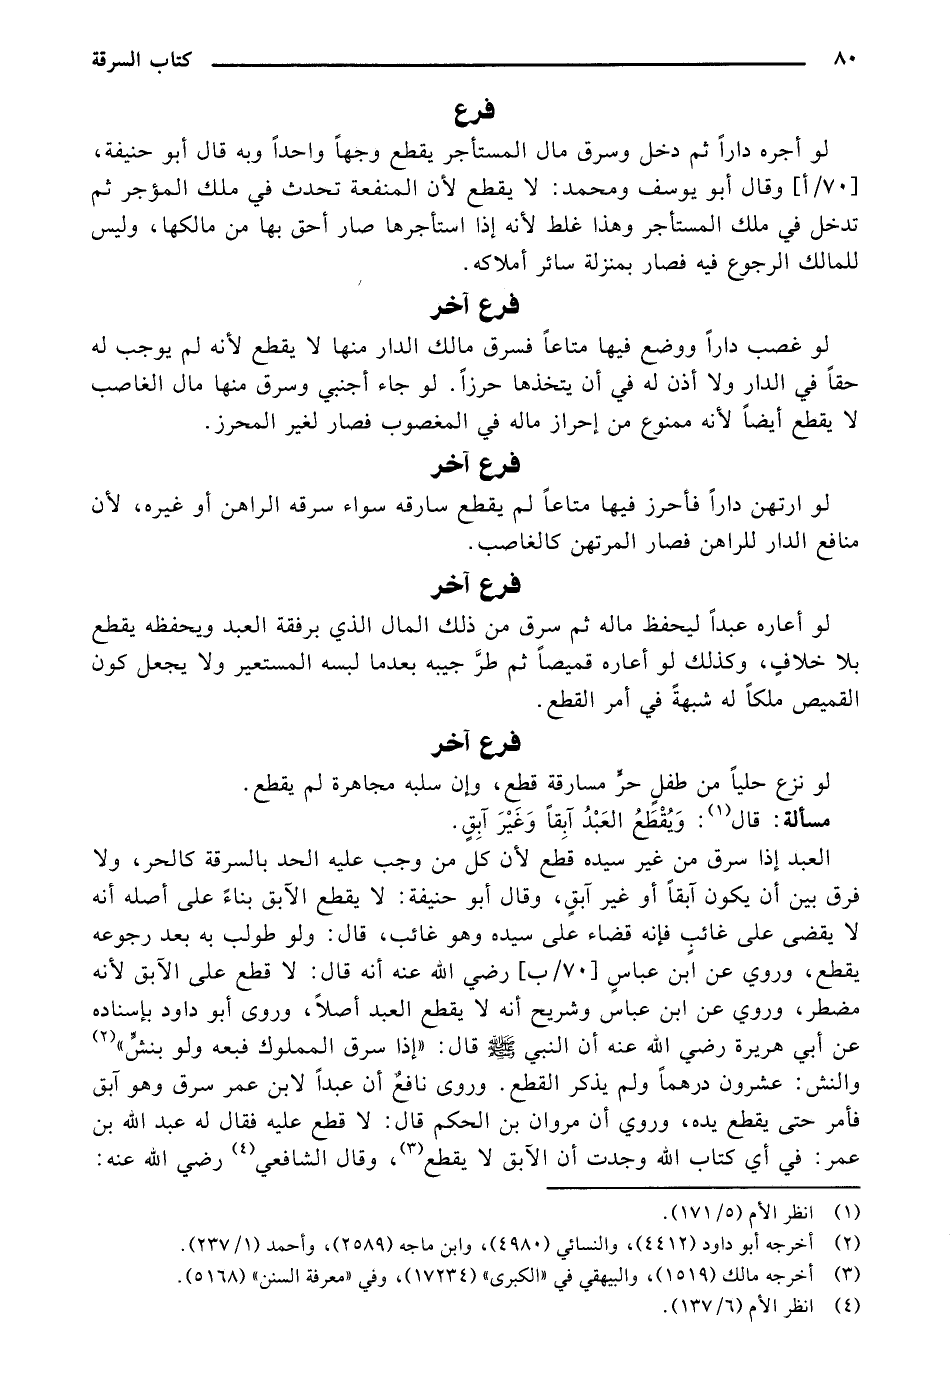 ٨٠ كتاب السرقة
فرع
لو أجره داراً ثم دخل وسرق مال المستأجر يقطع وجهاً واحداً وبه قال أبو حنيفة،
[٧٠/أ] وقال أبو يوسف ومحمد: لا يقطع لأن المنفعة تحدث في ملك المؤجر ثم
تدخل في ملك المستأجر وهذا غلط لأنه إذا استأجرها صار أحق بها من مالكها، وليس
للمالك الرجوع فيه فصار بمنزلة سائر أملاكه.
فرع آخر
لو غصب داراً ووضع فيها متاعاً فسرق مالك الدار منها لا يقطع لأنه لم يوجب له
حقاً في الدار ولا أذن له في أن يتخذها حرزاً. لو جاء أجنبي وسرق منها مال الغاصب
لا يقطع أيضاً لأنه ممنوع من إحراز ماله في المغصوب فصار لغير المحرز.
فرع آخر
لو ارتهن داراً فأحرز فيها متاعاً لم يقطع سارقه سواء سرقه الراهن أو غيره، لأن
منافع الدار للراهن فصار المرتهن كالغاصب.
فرع آخر
لو أعاره عبداً ليحفظ ماله ثم سرق من ذلك المال الذي برفقة العبد ويحفظه يقطع
بلا خلافٍ، وكذلك لو أعاره قميصاً ثم طرَّ جيبه بعدما لبسه المستعير ولا يجعل كون
القميص ملكاً له شبهةً في أمر القطع.
فرع آخر
لو نزع حلياً من طفلٍ حرٍّ مسارقة قطع، وإن سلبه مجاهرة لم يقطع.
مسألة: قال(١): وَيُقْطَعُ العَبْدُ آبِقاً وَغَيْرَ آبِقٍ.
العبد إذا سرق من غير سيده قطع لأن كل من وجب عليه الحد بالسرقة كالحر، ولا
فرق بين أن يكون آبقاً أو غير آبقٍ، وقال أبو حنيفة: لا يقطع الآبق بناءً على أصله أنه
لا يقضى على غائبٍ فإنه قضاء على سيده وهو غائب، قال: ولو طولب به بعد رجوعه
يقطع، وروي عن ابن عباسٍ [٧٠/ب] رضي الله عنه أنه قال: لا قطع على الآبق لأنه
مضطر، وروي عن ابن عباس وشريح أنه لا يقطع العبد أصلاً، وروى أبو داود بإسناده
عن أبي هريرة رضي الله عنه أن النبي ﷺ قال: «إذا سرق المملوك فبعه ولو بنشٍّ»(٢)
والنش: عشرون درهماً ولم يذكر القطع. وروى نافعٌ أن عبداً لابن عمر سرق وهو آبق
فأمر حتى يقطع يده، وروي أن مروان بن الحكم قال: لا قطع عليه فقال له عبد الله بن
عمر: في أي كتاب الله وجدت أن الآبق لا يقطع(٣)، وقال الشافعي(٤) رضي الله عنه:
(١) انظر الأم (٥/ ١٧١).
(٢) أخرجه أبو داود (٤٤١٢)، والنسائي (٤٩٨٠)، وابن ماجه (٢٥٨٩)، وأحمد (١/ ٢٣٧).
(٣) أخرجه مالك (١٥١٩)، والبيهقي في «الكبرى» (١٧٢٣٤)، وفي «معرفة السنن» (٥١٦٨).
(٤) انظر الأم (٦/ ١٣٧).